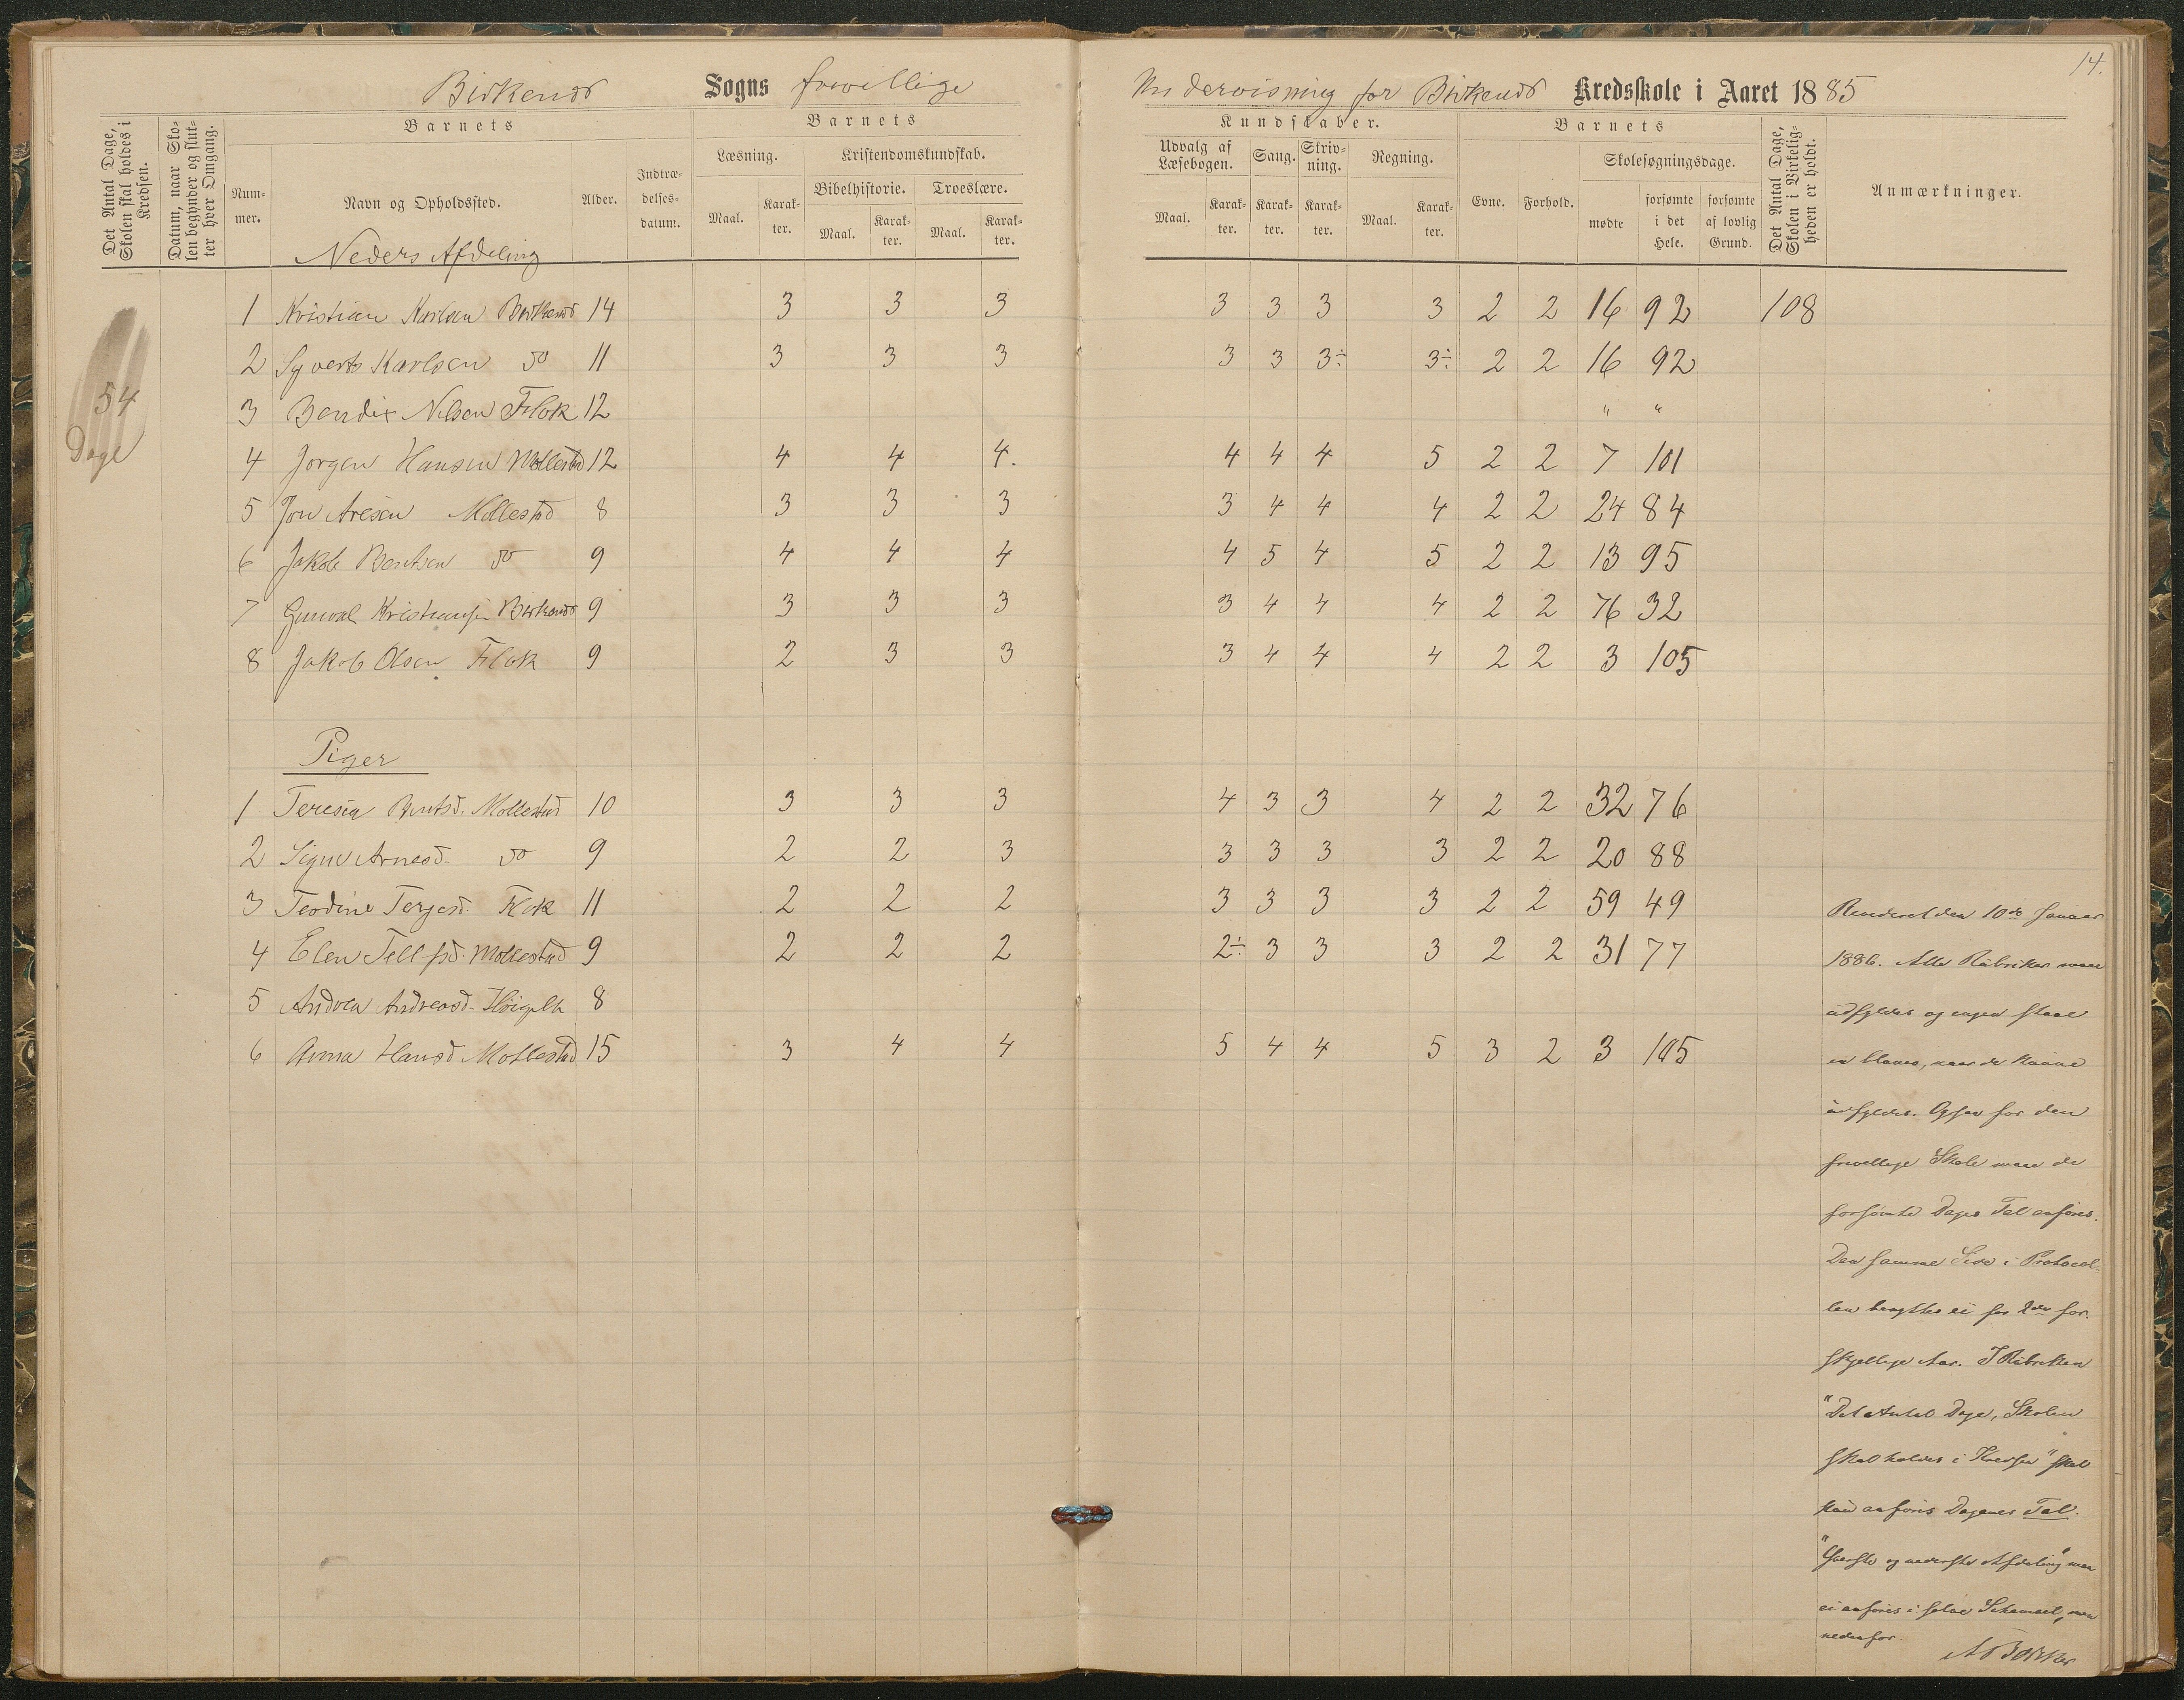 14.
Birkenes Sogns frivillige Undervisning for Birkenes Kredsskole i Aaret 1885
Det Antal Dage, Skolen skal holdes i Kredsen.
Datum, naar Skolen begynder og slutter hver Omgang.
Barnets Barnets Kundskaber. Barnets
Nummer. Navn og Opholdssted. Alder. Indtrædelsesdatum. Læsning. Kristendomskundskab. Udvalg af Læsebogen. Sang. Skrivning. Regning. Evne. Forhold. Skolesøgningsdage. Det Antal Dage, Skolen i Virkeligheden er holdt. Anmærkninger.
Bibelhistorie. Troeslære.
Maal. Karakter. Maal. Karakter. Maal. Karakter. Maal. Karakter. Karakter. Karakter. Maal. Karakter. mødte forsømte i det Hele. forsømte af lovlig Grund.
Neders Afdeling
1 Kristian Karlsen Birkenes 14 3 3 3 3 3 3 3 2 2 16 92 108
2 Syvert Karlsen do 11 3 3 3 3 3 3÷ 3÷ 2 2 16 92
54 Dage
3 Bendix Nilsen Flak 12 " "
4 Jørgen Hansen Mollestad 12 4 4 4. 4 4 4 5 2 2 7 101
5 Jon Aresen Mollestad 8 3 3 3 3 4 4 4 2 2 24 84
6 Jakob Bentsen do 9 4 4 4 4 5 4 5 2 2 13 95
7 Gunval Kristiansen Birkenes 9 3 3 3 3 4 4 4 2 2 76 32
8 Jakob Olsen Flak 9 2 3 3 3 4 4 4 2 2 3 105
Piger
1 Teresia Bentsd. Mollestad 10 3 3 3 4 3 3 4 2 2 32 76
2 Signe Arnesd. do 9 2 2 3 3 3 3 3 2 2 20 88
3 Teodine Terjesd. Flak 11 2 2 2 3 3 3 3 2 2 59 49
4 Elen Tellefsd. Mollestad 9 2 2 2 2÷ 3 3 3 2 2 31 77
5 Andrea Andreasd. 8
6 Anna Hansd. Mollestad 15 3 4 4 5 4 4 5 3 2 3 105
Revideret den 10de Januar
1886. Alle Rubriker maae
udfyldes og ingen staae
in blanco, naar de kunne
udfyldes. Ogsaa for den
frivellige Skole maae de
forsømte Dages Tal anføres.
Den samme Side i Protocol-
len benyttes ei for 2de for-
skjellige Aar. I Rubriken
"Det Antal Dage, Skolen
skal holdes i Kredsen" skal
kun anføres Dagenes Tal.
"Øverste og nederste Afdeling" maa
ei anføres i selve Schemaet, men
nedenfor.